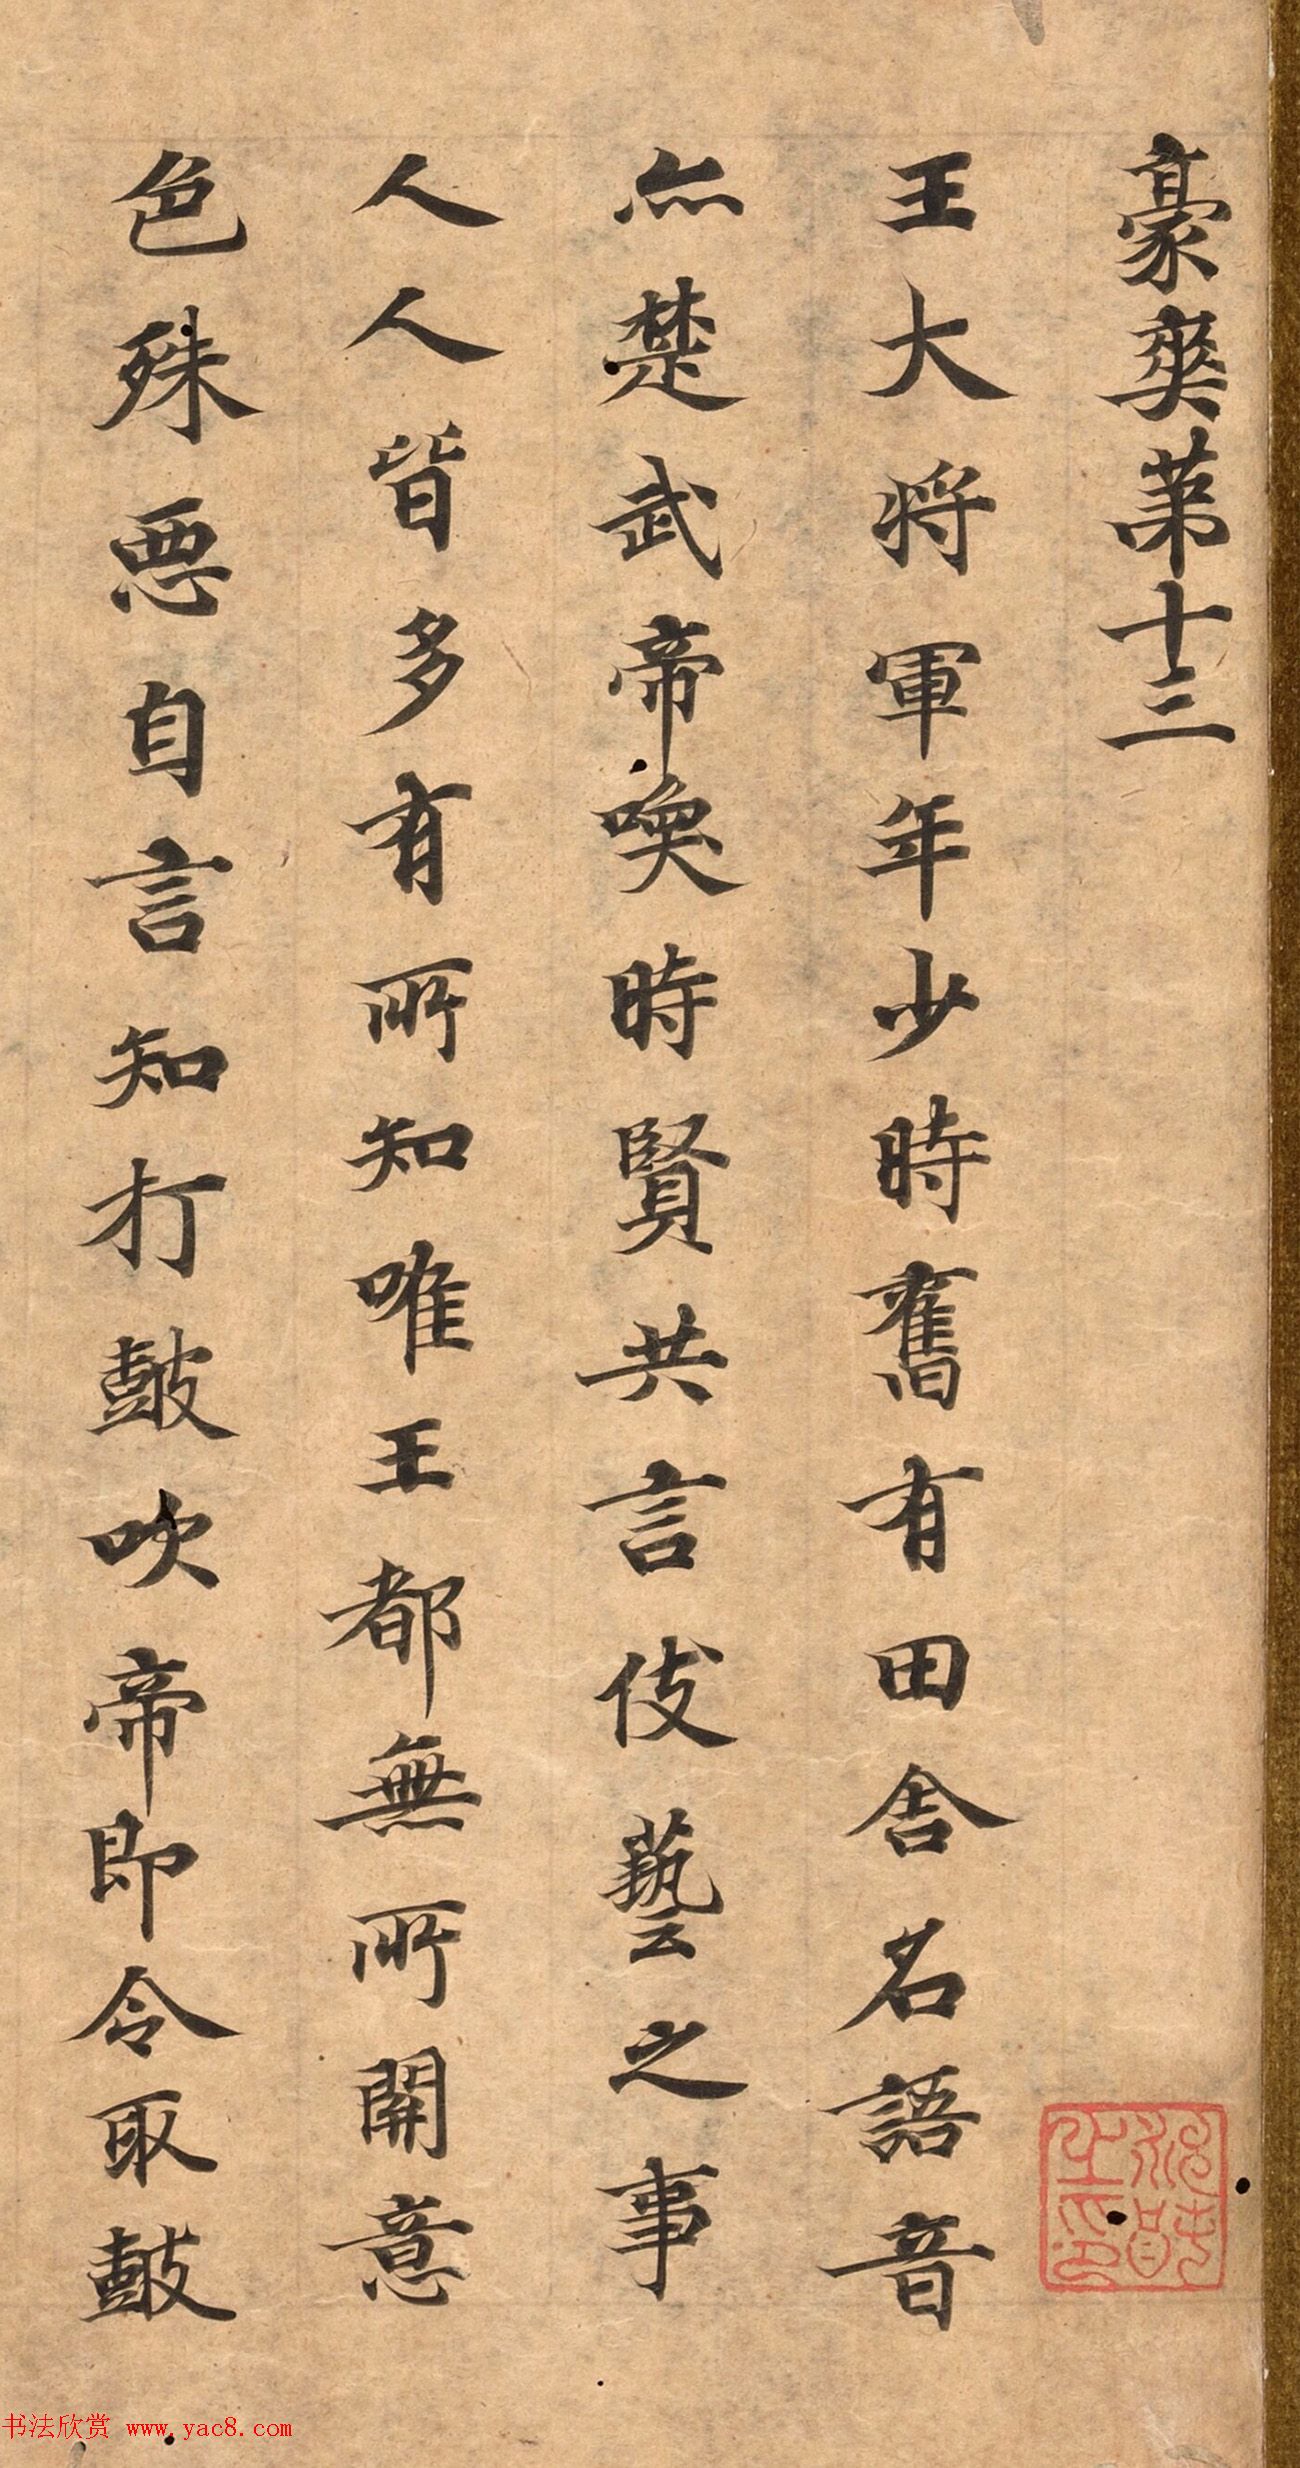 豪爽第十三
王大将軍年少時舊有田舍名語音
亦楚武帝喚時賢共言伎藝之事
人人皆多有所知唯王都無所開意
色殊惡自言知打皷吹帝即令取皷
书法欣赏 www.yac8.com